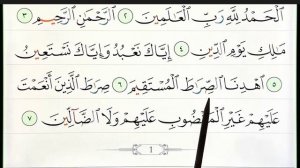 ٱلْحَمْدُ لِلَّهِ رَبِّ ٱلْعَـٰلَمِينَ ٢ ٱلرَّحْمَـٰنِ ٱلرَّحِيمِ ٣
مَـٰلِكِ يَوْمِ ٱلدِّينِ ٤ إِيَّاكَ نَعْبُدُ وَإِيَّاكَ نَسْتَعِينُ
٥ ٱهْدِنَا ٱلصِّرَٰطَ ٱلْمُسْتَقِيمَ ٦ صِرَٰطَ ٱلَّذِينَ أَنْعَمْتَ
عَلَيْهِمْ غَيْرِ ٱلْمَغْضُوبِ عَلَيْهِمْ وَلَا ٱلضَّآلِّينَ ٧
1